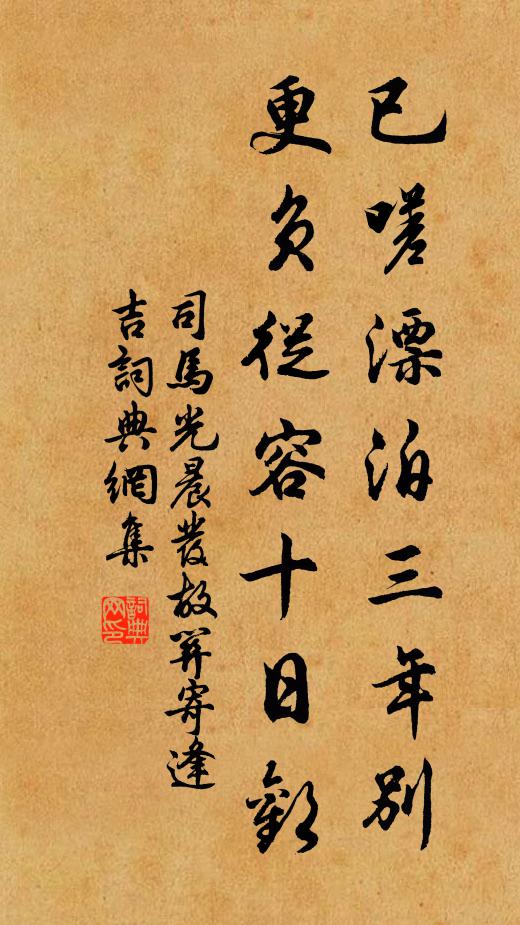 已嗟漂泊三年別
更負從容十日歡
司馬光晨發故關寄逢
吉詞典網集
詞典網印